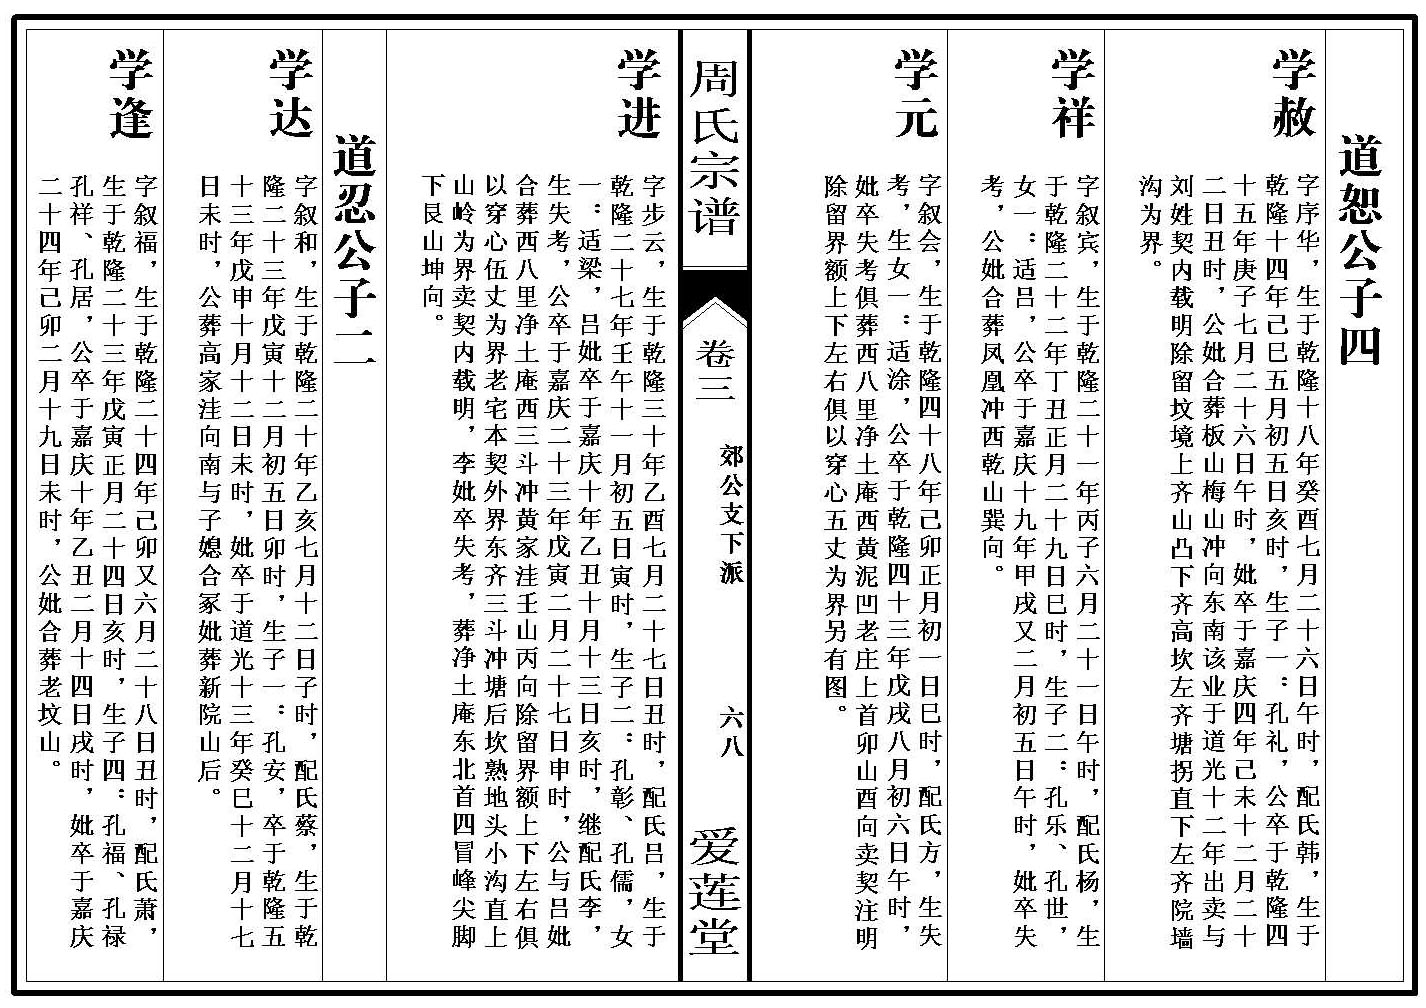 道恕公子四
学赦
字序华，生于乾隆十八年癸酉七月二十六日午时，配氏韩，生于
乾隆十四年己巳五月初五日亥时，生子一：孔礼，公卒于乾隆四
十五年庚子七月二十六日午时，妣卒于嘉庆四年己未十二月二十
二日丑时，公妣合葬板山梅山冲向东南该业于道光十二年出卖与
刘姓契内载明除留坟境上齐山凸下齐高坎左齐塘拐直下左齐院墙
沟为界。
学祥
字叙宾，生于乾隆二十一年丙子六月二十一日午时，配氏杨，生
于乾隆二十二年丁丑正月二十九日巳时，生子二：孔乐、孔世，
女一：适吕，公卒于嘉庆十九年甲戌又二月初五日午时，妣卒失
考，公妣合葬凤凰冲西乾山巽向。
学元
字叙会，生于乾隆四十八年己卯正月初一日巳时，配氏方，生失
考，生女一：适涂，公卒于乾隆四十三年戊戌八月初六日午时，
妣卒失考俱葬西八里净土庵西黄泥凹老庄上首卯山酉向卖契注明
除留界额上下左右俱以穿心五丈为界另有图。
周氏宗谱
卷三
郊公支下派
六八
爱莲堂
学进
字步云，生于乾隆三十年乙酉七月二十七日丑时，配氏吕，生于
乾隆二十七年壬午十一月初五日寅时，生子二：孔彰、孔儒，女
一：适梁，吕妣卒于嘉庆十年乙丑十月十三日亥时，继配氏李，
生失考，公卒于嘉庆二十三年戊寅二月二十七日申时，公与吕妣
合葬西八里净土庵西三斗冲黄家洼壬山丙向除留界额上下左右俱
以穿心伍丈为界老宅本契外界东齐三斗冲塘后坎熟地头小沟直上
山岭为界卖契内载明，李妣卒失考，葬净土庵东北首四冒峰尖脚
下艮山坤向。
道忍公子二
学达
字叙和，生于乾隆二十年乙亥七月十二日子时，配氏蔡，生于乾
隆二十三年戊寅十二月初五日卯时，生子一：孔安，卒于乾隆五
十三年戊申十月十二日未时，妣卒于道光十三年癸巳十二月十七
日未时，公葬高家洼向南与子媳合冢妣葬新院山后。
学逢
字叙福，生于乾隆二十四年己卯又六月二十八日丑时，配氏萧，
生于乾隆二十三年戊寅正月二十四日亥时，生子四：孔福、孔禄
孔祥、孔居，公卒于嘉庆十年乙丑二月十四日戌时，妣卒于嘉庆
二十四年己卯二月十九日未时，公妣合葬老坟山。